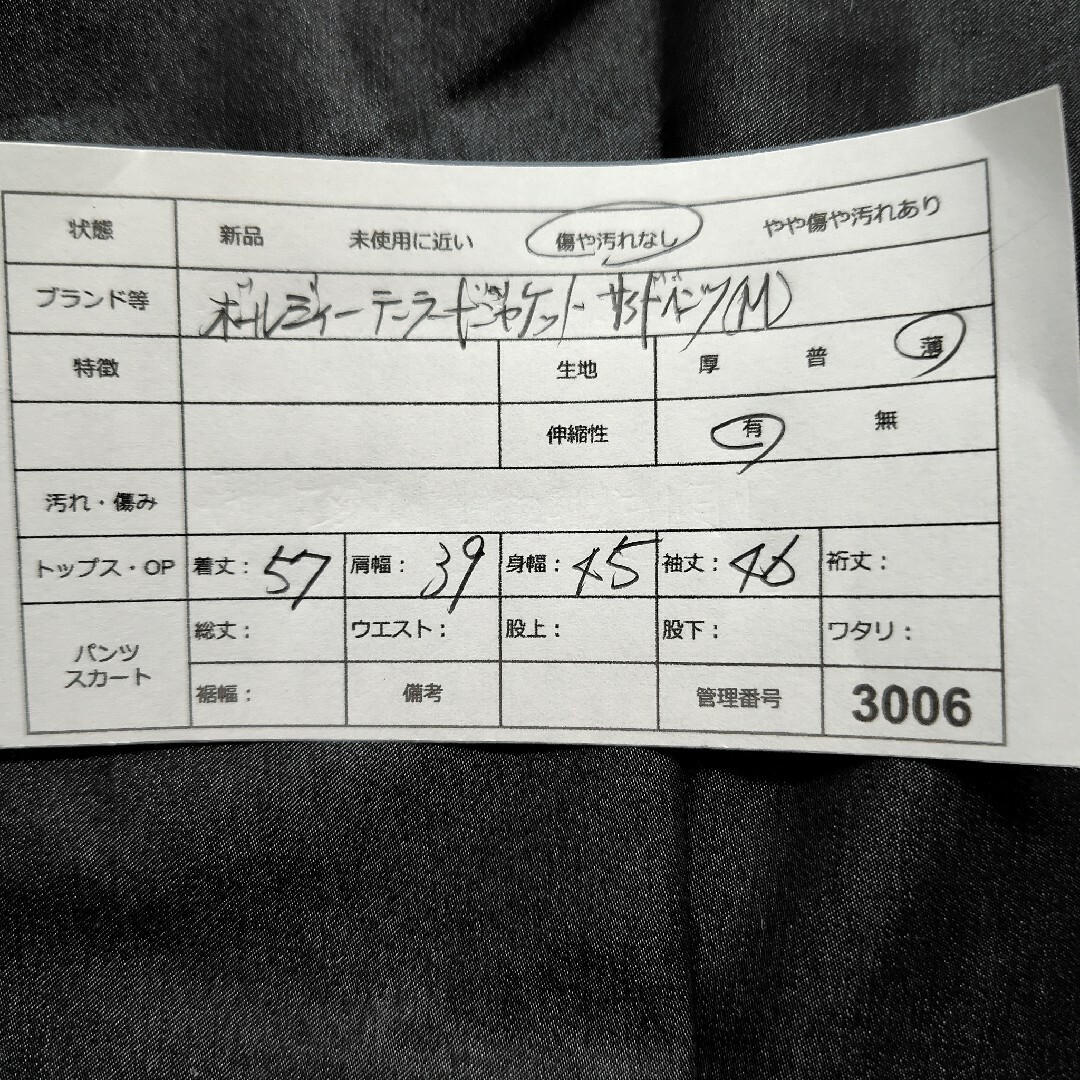 状態 新品 未使用に近い 傷や汚れなし やや傷や汚れあり
ブランド等 ボールジィー テーラードジャケット サイドベンツ(M)
特徴 生地 厚 普 薄
伸縮性 有 無
汚れ・傷み
トップス・OP 着丈:57 肩幅:39 身幅:45 袖丈:46 裄丈:
パンツ スカート 総丈: ウエスト: 股上: 股下: ワタリ:
裾幅: 備考 管理番号 3006